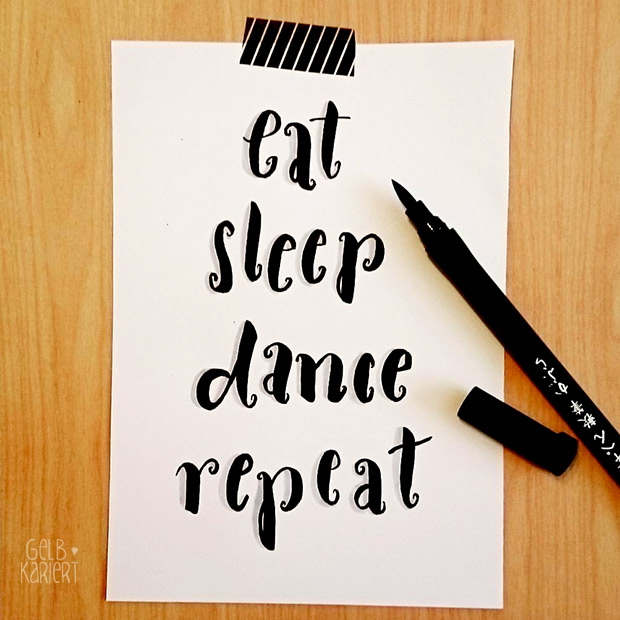 eat
sleep
dance
repeat
GELB ♥
KARIERT